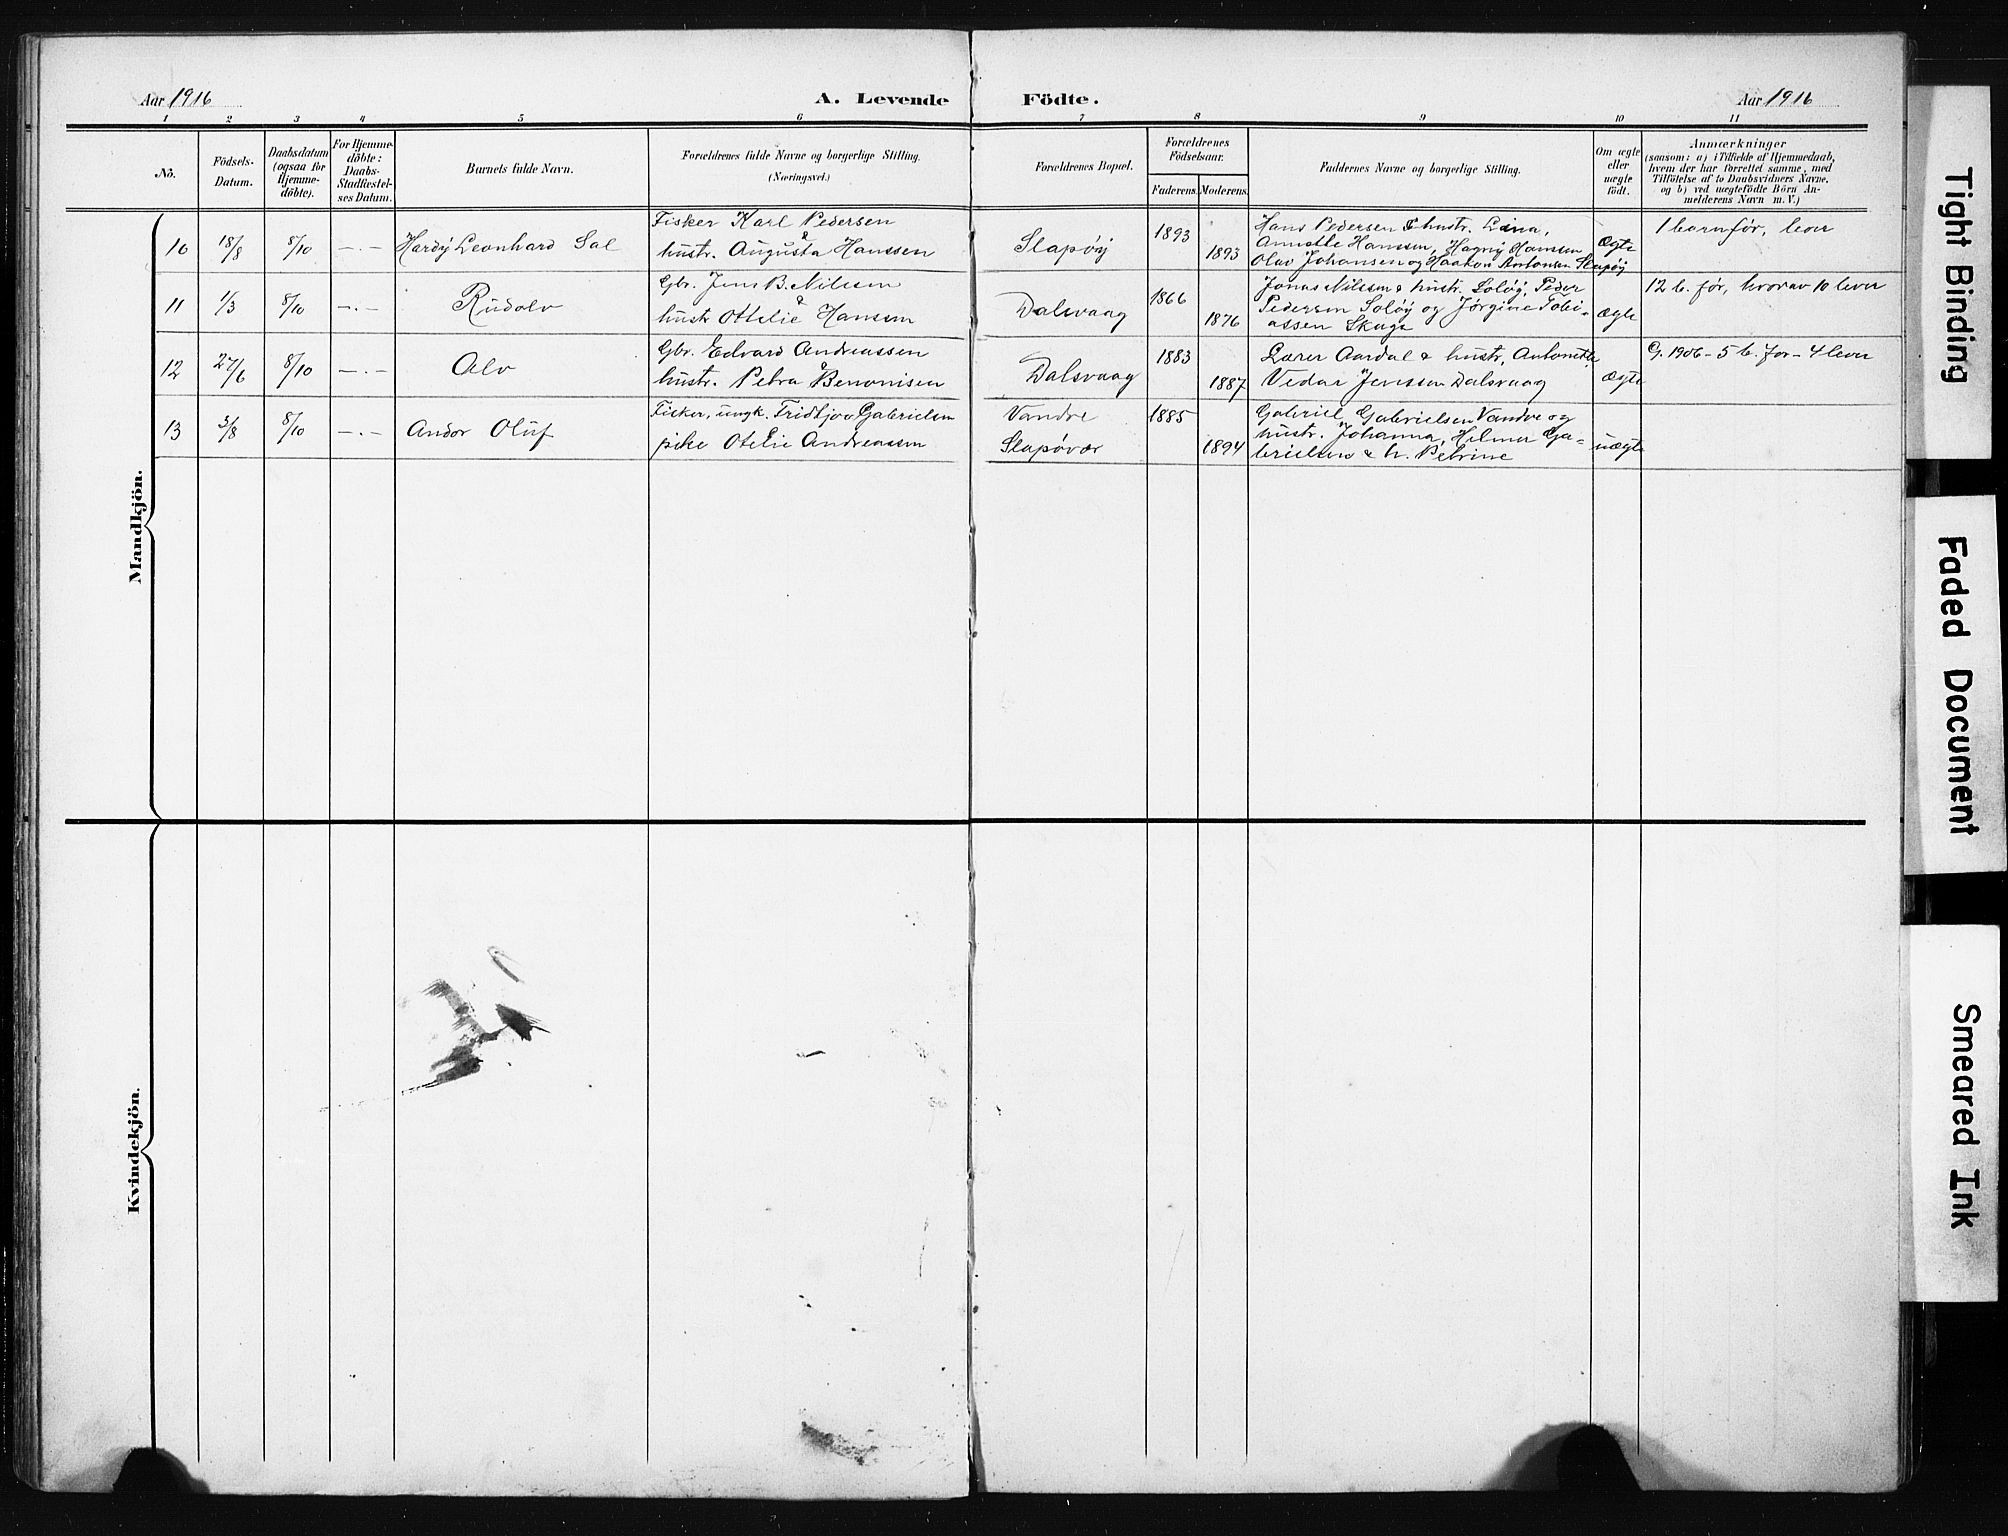 Aar 1916
A. Levende Födte.
Aar 1916
1 2 3 4 5 6 7 8 9 10 11
No.
Födsels-
Datum.
Daabsdatum
(ogsaa for
Hjemme-
döbte).
For Hjemme-
döbte:
Daabs-
Stadfæstel-
ses Datum.
Barnets fulde Navn.
Forældrenes fulde Navne og borgerlige Stilling.
(Næringsvei.)
Forældrenes Bopæl.
Forældrenes
Födselsaar.
Faderens. Moderens.
Faddernes Navne og borgerlige Stilling.
Om ægte
eller
uægte
födt.
Anmærkninger
(saasom: a) i Tilfælde af Hjemmedaab,
hvem der har forrettet samme, med
Tilföielse af to Daabsvidners Navne,
og b) ved uægtefödte Börn An-
melderens Navn m. V.)
Mandkjön.
10 18/8 8/10 -.- Hardÿ Leonhard Sal
Fisker Karl Pedersen
&
hustr. Augusta Hanssen
Slapøÿ
1893
1893
Hans Pedersen & hustr. Lina,
Annette Hanssen, Hagnÿ Hanssen
Olav Johansen og Haakon Antonsen Slapøÿ
Ægte
1 barn før, lever
11 1/3 8/10 -.- Rudolv
Gbr. Jens B. Nilsen
&
hustr Ottelie Hansen
Dalsvaag
1866
1876
Jonas Nilssen & hustr. Soløÿ, Peder
Pedersen Soløÿ og Jørgine Tobi-
assen Skage
ægte
12 b. før, hvorav 10 lever
12 27/6 8/10 -.- Alv
Gbr. Edvard Andreassen
&
hustr. Petra Benonisen
Dalsvaag
1883
1887
Lærer Aardal & hustr, Antonette,
Vedar Jenssen Dalsvaag
ægte
G. 1906 - 5 b. før - 4 lever
13 3/8 8/10 -.- Andor Oluf
Fisker, ungk. Fridtjov Gabrielsen
&
pike Otelie Andreassen
Vandve
Slapøvær
1885
1894
Gabriel Gabrielsen Vandve og
hustr. Johanna, Hilmer Ga-
brielsen & h. Petrine
uægte
Kvindekjön.
Tight Binding
Faded Document
Smeared Ink